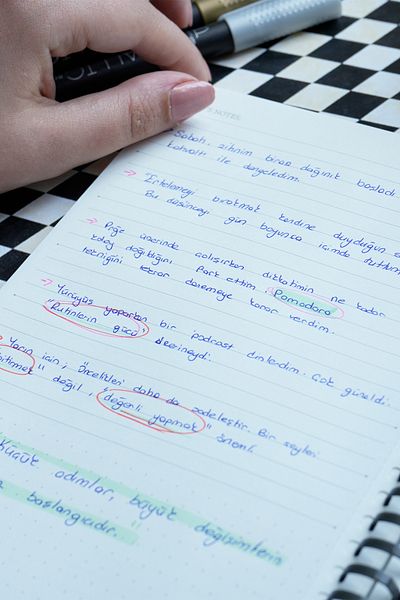 NOTES
Sabah, zihnim biraz dağınık başladı
kahvaltı ile dengeledim.
→ "Ertelemeyi bırakmak kendine duyduğun
Bu düşünceyi gün boyunca içimde tuttum
→ Proje üzerinde çalışırken dikkatimin ne kadar
kolay dağıldığını fark ettim. Pomodoro
tekniğini tekrar denemeye karar verdim.
→ Yürüyüş yaparken bir podcast dinledim. Çok güzeldi.
"Rutinlerin gücü" üzerineydi.
Yarın için; öncelikleri daha da sadeleştir. Bir şeyleri
bitirmek" değil, "değerli yapmak" önemli.
Küçük adımlar, büyük değişimlerin
başlangıcıdır.